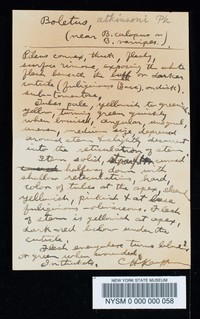 Boletus, atkinsoni Pk
(near B. calopus or
B. ravinus.)
Pileus convex, thick, fleshy,
surface rimose, exposing the white
flesh beneath the buff or darker
cuticle (fuliginous disk),
subtomentose.
Tubes pale, yellowish to green
yellow, turning green
when bruised, angular,
uneven, medium size, depressed
around stem & slightly decurrent
into the reticulation of stem.
Stem solid, curved
half way down
color of tubes at the apex,
yellowish, pinkish & at base
Flesh
of stem is yellowish at apex,
dark red below under the
cuticle.
Flesh everywhere turns blue
or green when bruised.
In thickets.
NEW YORK STATE MUSEUM
NYSM 0 000 000 058